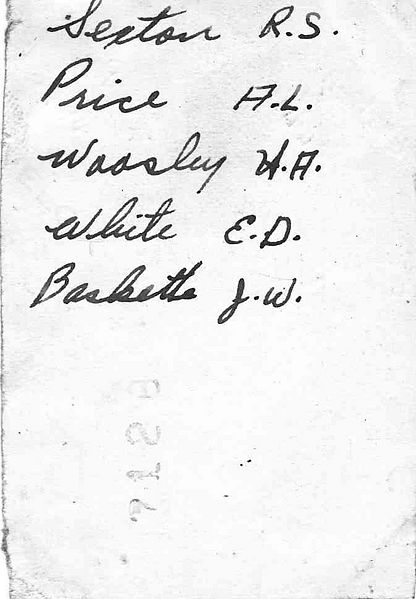 Sexton R.S.
Price A.L.
Woosley H.A.
White E.D.
Baskette J.W.